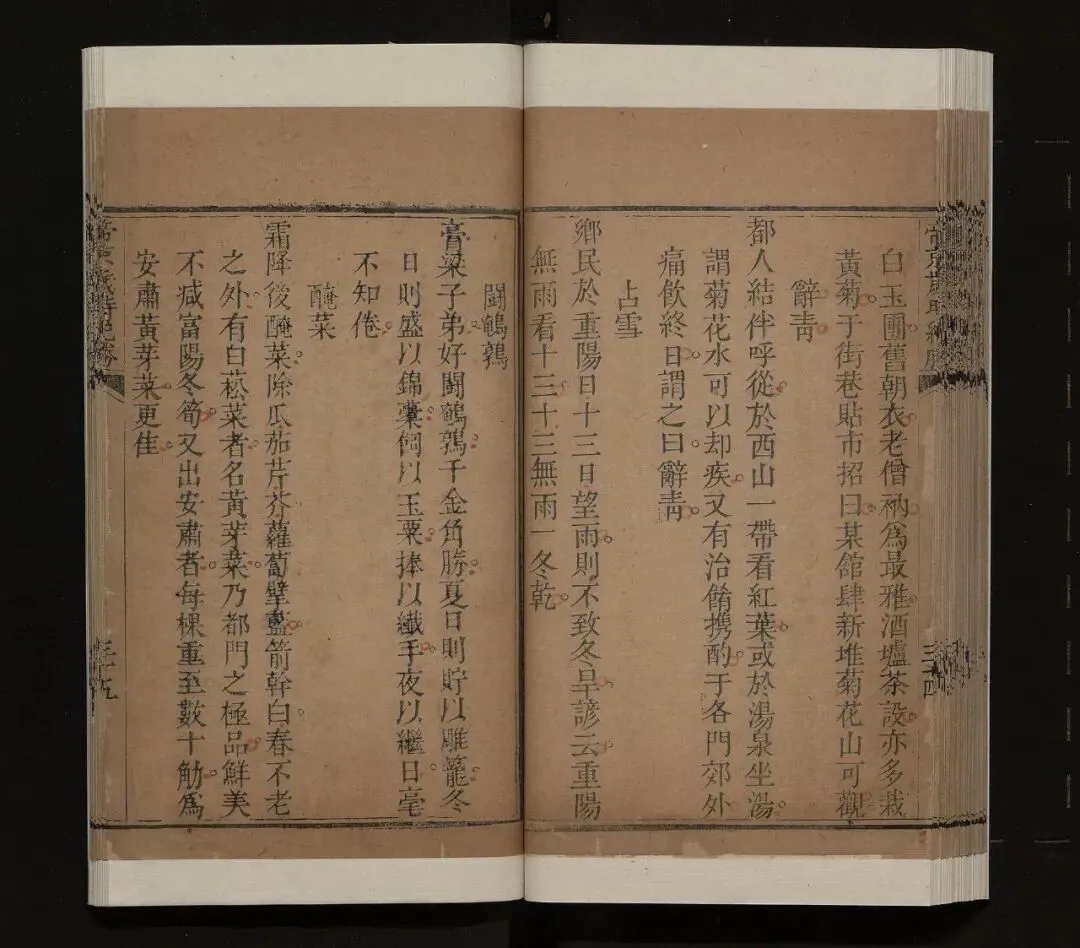 白玉團舊朝衣老僧衲爲最雅酒壚茶設亦多栽
黃菊于街巷貼市招曰某館肆新堆菊花山可觀
辭青
都人結伴呼從於西山一帶看紅葉或於湯泉坐湯
謂菊花水可以却疾又有治餚携酌于各門郊外
痛飲終日謂之曰辭青
占雪
鄉民於重陽日十三日望雨則不致冬旱諺云重陽
無雨看十三十三無雨一冬乾
鬭鵪鶉
膏粱子弟好鬭鵪鶉千金角勝夏日則貯以雕籠冬
日則盛以錦囊飼以玉粟捧以纖手夜以繼日毫
不知倦
醃菜
霜降後醃菜除瓜茄芹芥蘿蔔擘藍箭幹白春不老
之外有白菘菜者名黃芽菜乃都門之極品鮮美
不減富陽冬筍又出安肅者每棵重至數十觔爲
安肅黃芽菜更佳
三十五